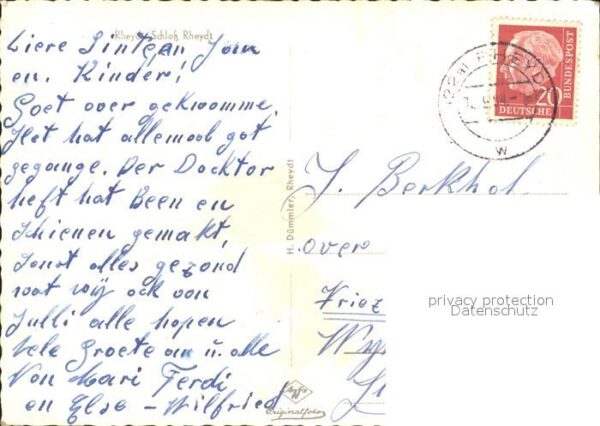 Rheydt, Schloß Rheydt
Liere Jan
en. Kinder!
Goet over gekwomme.
Het hat allemool got
gegange. Der Docktor
heft hat Been en
Schienen gemakt,
Sonst alles gezond
wat wÿ ock von
Jülli alle hopen
Vele Groete an u. alle
Von Mari Ferdi
en Else - Wilfried
H. Dümmler, Rheydt
Agfa
Originalfoto
RHEYDT
w
20
DEUTSCHE
BUNDESPOST
J. Berkhol
over
Vriez
privacy protection
Datenschutz